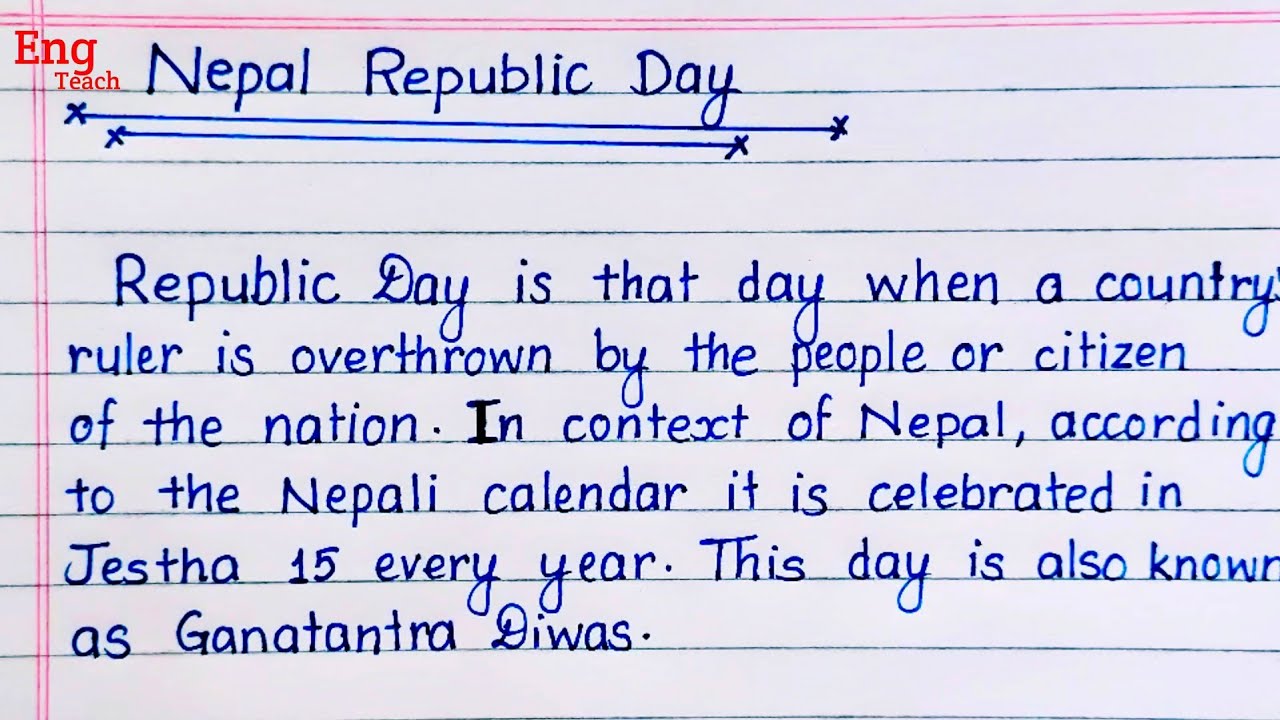 Eng
Teach
Nepal Republic Day
Republic Day is that day when a country's
ruler is overthrown by the people or citizen
of the nation. In context of Nepal, according
to the Nepali calendar it is celebrated in
Jestha 15 every year. This day is also known
as Ganatantra Diwas.